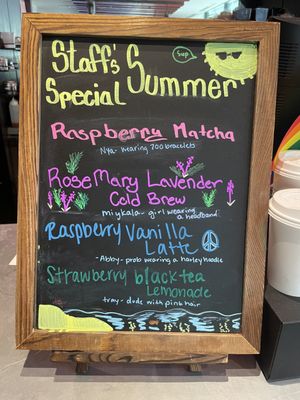 Staff's Summer
Special
Sup
Raspberry Matcha
Nya - wearing 700 bracelets
RoseMary Lavender
Cold Brew
miykala - girl wearing
a headband
Raspberry Vanilla
Latte
Abby - prob wearing a harley hoodie
Strawberry black tea
Lemonade
tray - dude with pink hair